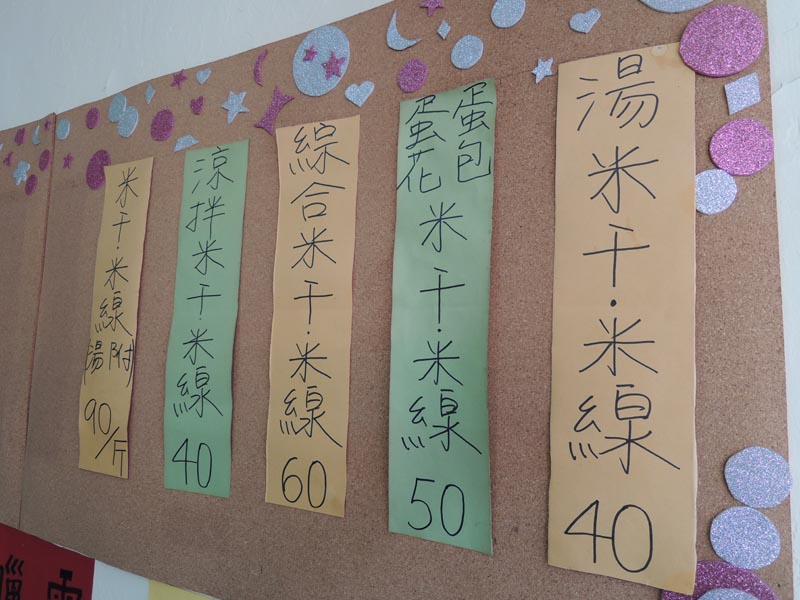 湯米干·米線 40
蛋包
蛋花
米干·米線 50
綜合米干·米線 60
涼拌米干·米線 40
米干·米線 (湯附) 90/斤